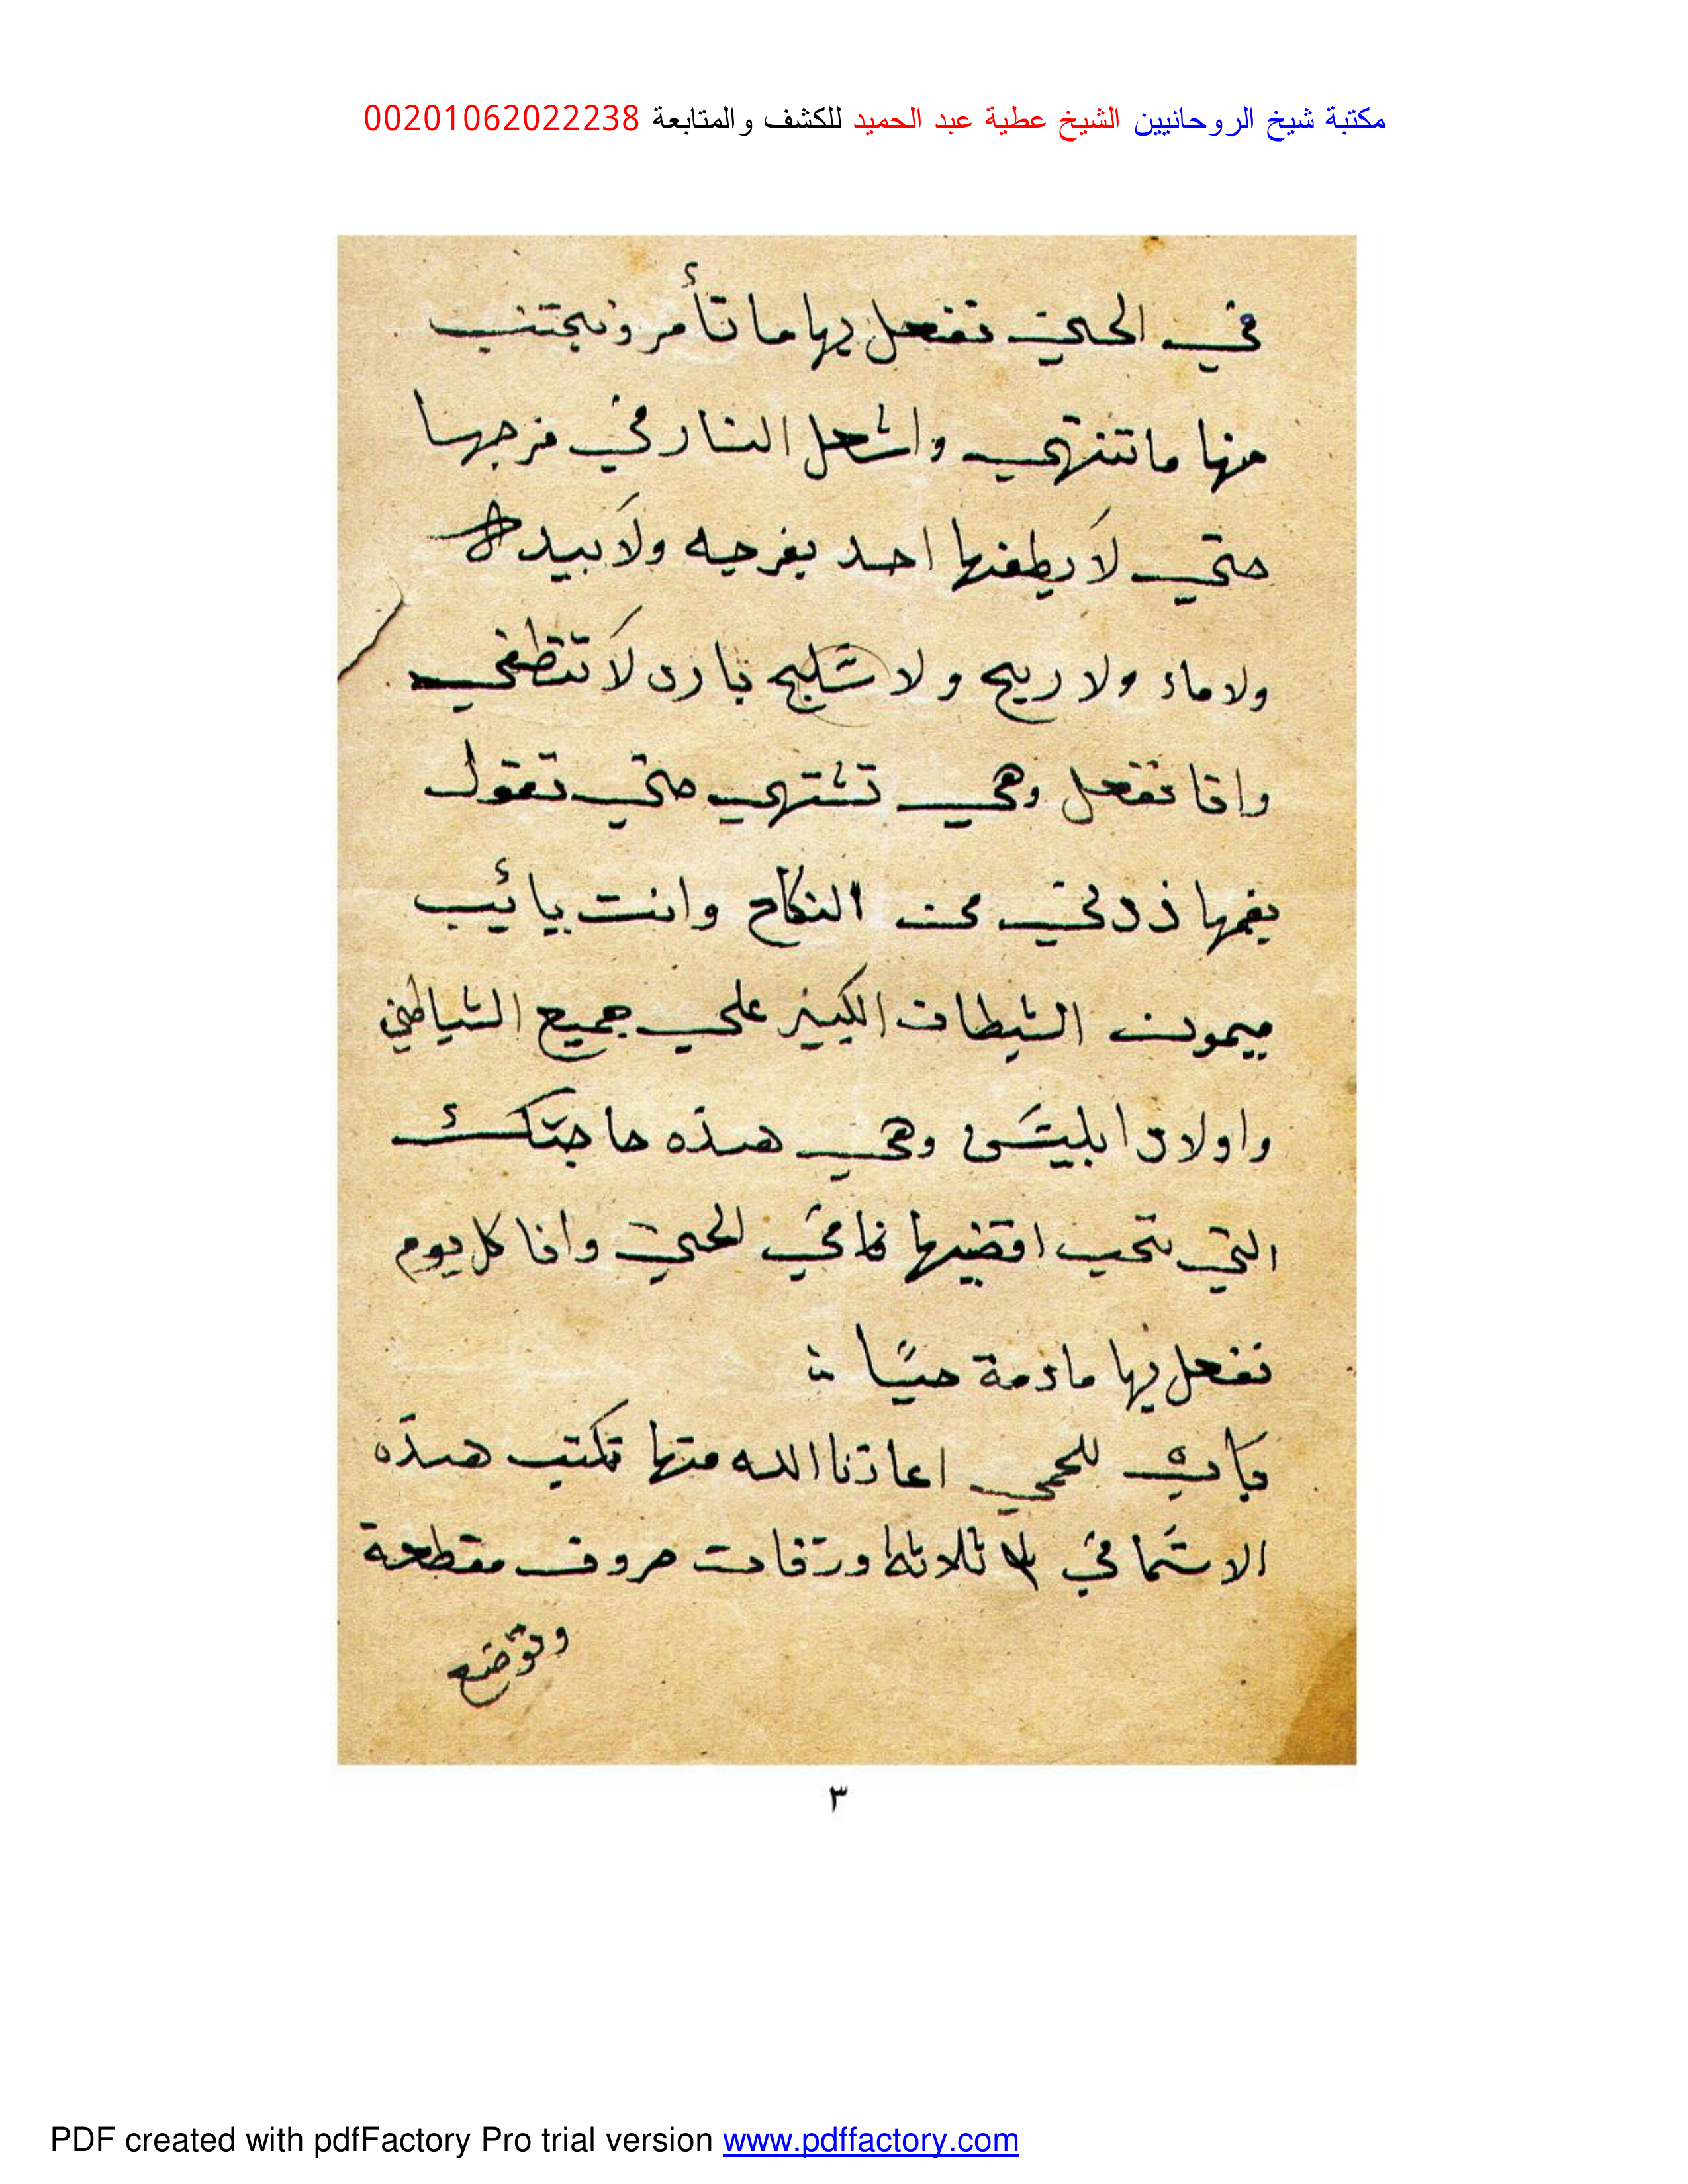 مكتبة شيخ الروحانيين الشيخ عطية عبد الحميد للكشف والمتابعة 00201062022238
في الحين تفعل بها ما تأمر ونجتنب
منها ما تنتهي واشعل النار في فرجها
حتي لا يطفيها احد بفرجه ولا بيده
ولا ماء ولا ريح ولا شلج بارد لا تتطفي
وانا نفعل وهي تشتهي حتي تقول
بفمها زدني من النكاح وانت يا
ميمون الشيطان الكبير علي جميع الشياطين
واولاد ابليس وهي هذه حاجتك
التي تحب اقضيها في الحين وانا كل يوم
نفعل بها مادمة حيًا
باب للحمي اعاذنا الله منها تكتب هذه
الاسما في ٣ ثلاثة ورقات حروف مقطعة
وتوضع
٣
PDF created with pdfFactory Pro trial version www.pdffactory.com